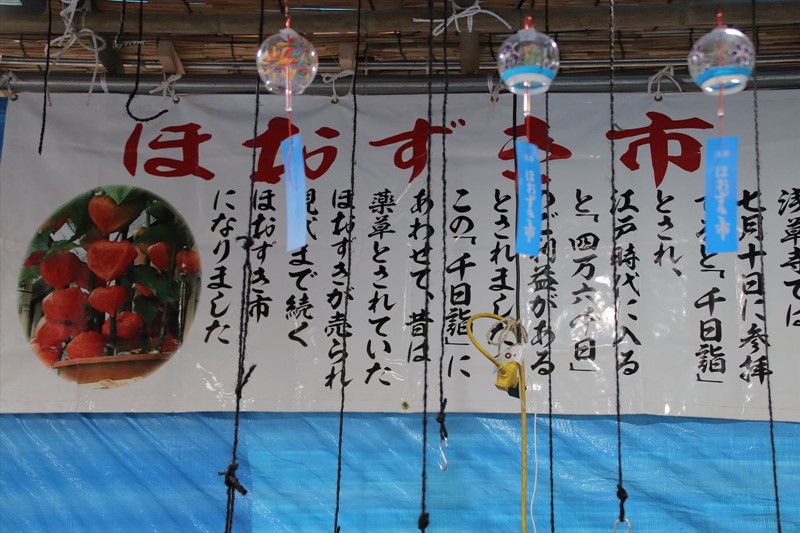 ほおずき市
浅草寺では
七月十日に参拝
すると「千日詣」
とされ、
江戸時代に入る
と、「四万六千日」
のご利益がある
とされました
この「千日詣」に
あわせて、昔は
薬草とされていた
ほおずきが売られ
現代まで続く
ほおずき市
になりました
ほおずき市
ほおずき市